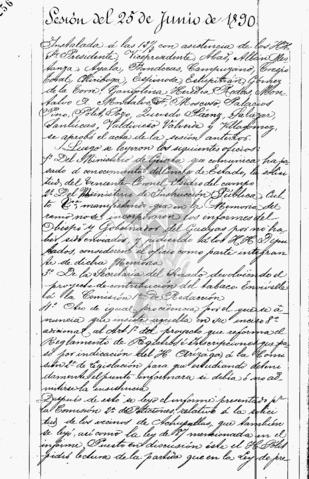 Sesión del 25 de Junio de 1890.
Instalada á las 12½ con asistencia de los HH.
Sr. Presidente, Vicepresidente, Abad,
Ayala, Banderas, Campuzano, Crespo
Coral, Chiriboga, Espinosa, Estupiñán, Gómez
de la Torre, Gangotena, Heredia, Rodas, Mon-
talvo A. Montalvo F. Moscoso, Palacios
Pino, Polit, Pozo, Quevedo, Sáenz, Salazar,
Santistevan, Valdivieso, Valverde y Villagómez,
se aprobó el acta de la sesión anterior.
Luego se leyeron los siguientes oficios:
1º Del Ministerio de Guerra que comunica ha pa-
sado á conocimiento del Consejo de Estado, la solici-
tud, del Teniente Coronel Isidro del Campo
2º Del Ministerio de Instrucción Pública, Cul-
to &ª manifestando que en la Memoria del
ramo no se incorporaron los informes del
Obispo y Gobernador del Guayas por no ha-
ber sido enviados, y pidiendo á los HH. Dipu-
tados consideren el oficio como parte integran-
te de dicha Memoria
3º De la Secretaría del Senado devolviendo el
proyecto de contribución del tabaco
á la Comisión 1ª de Redacción
4º Otro de igual procedencia por el que se a-
nuncia que insiste aquella en su inciso 8º
adicional al Art. 1º del proyecto que reforma el
Reglamento de Registros é inscripciones que pa-
só por indicación del H. Arízaga á la Comi-
sión 2ª de Legislación para que estudiando deteni-
damente el punto informara si debía ó no ad-
mitirse la insistencia
Después de esto se leyó el informe presentado pr.
la Comisión 2ª de Peticiones, relativo á la solici-
tud de los vecinos de Achupallas, que también
se leyó, así como la ley de 87 mencionada en el
informe. Puesto en discusión éste el H. Polit
pidió lectura de la partida que en la Ley de pre-